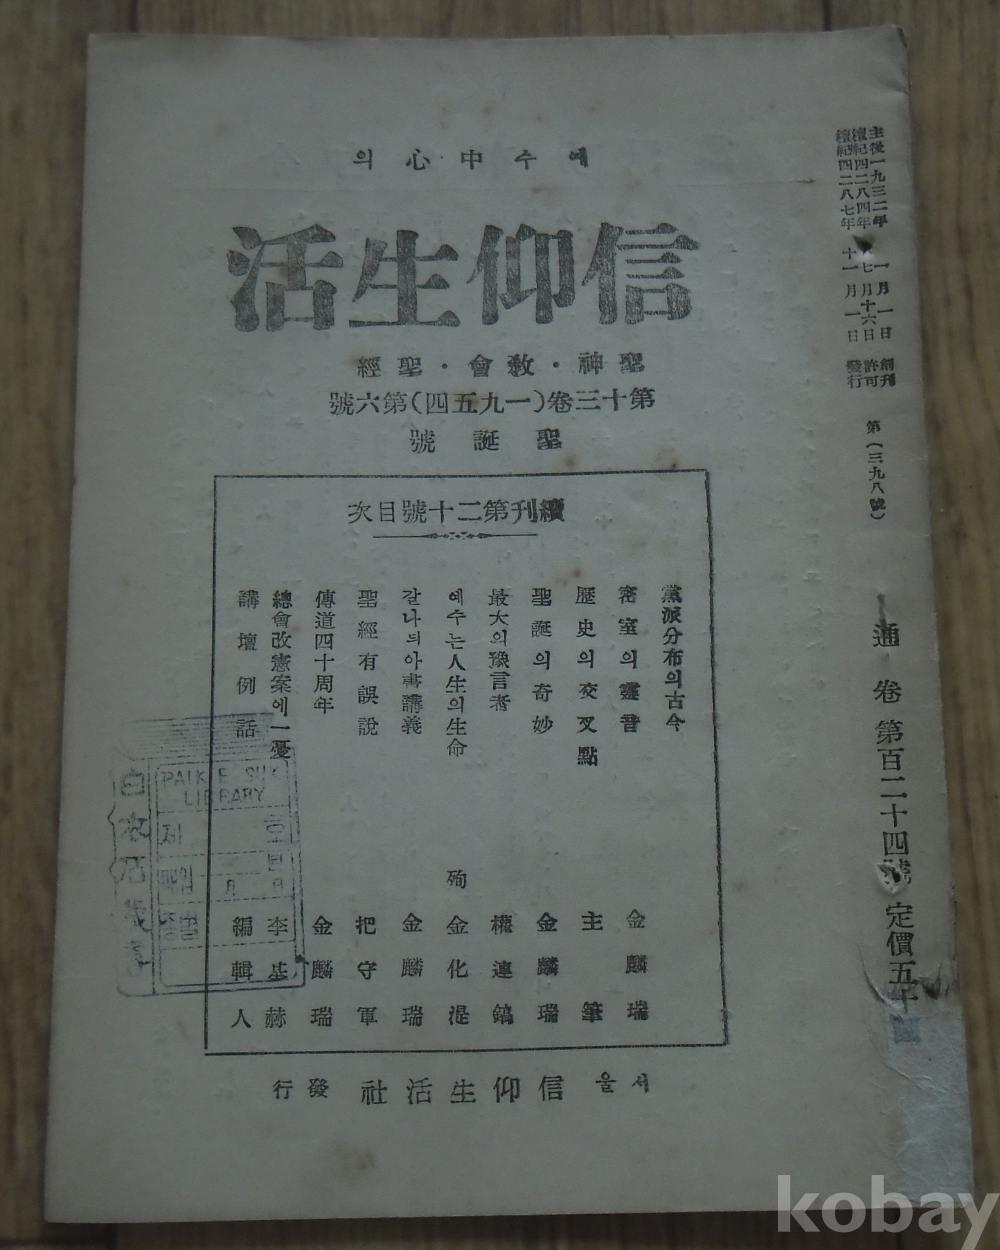 主後一九三二年 一月一日 創刊
檀紀四二八四年 七月十六日 許可
檀紀四二八七年 十一月一日 發行
第(三九八號)
通卷 第百二十四號 定價五十
예수中心의
信仰生活
聖神・敎會・聖經
第十三卷(一九五四)第六號
聖誕號
續刊第二十號目次
黨派分布의古今
密室의靈音 金麟瑞
歷史의交叉點 主筆
聖誕의奇妙 金麟瑞
最大의豫言者 權連鎬
예수는人生의生命 殉 金化湜
갈나듸아書講義 金麟瑞
聖經有誤說 把守軍
傳道四十周年 金麟瑞
總會改憲案에一憂 李基赫
講壇例話 編輯人
PAIK E SUK
LIBRARY
서울 信仰生活社 發行
kobay